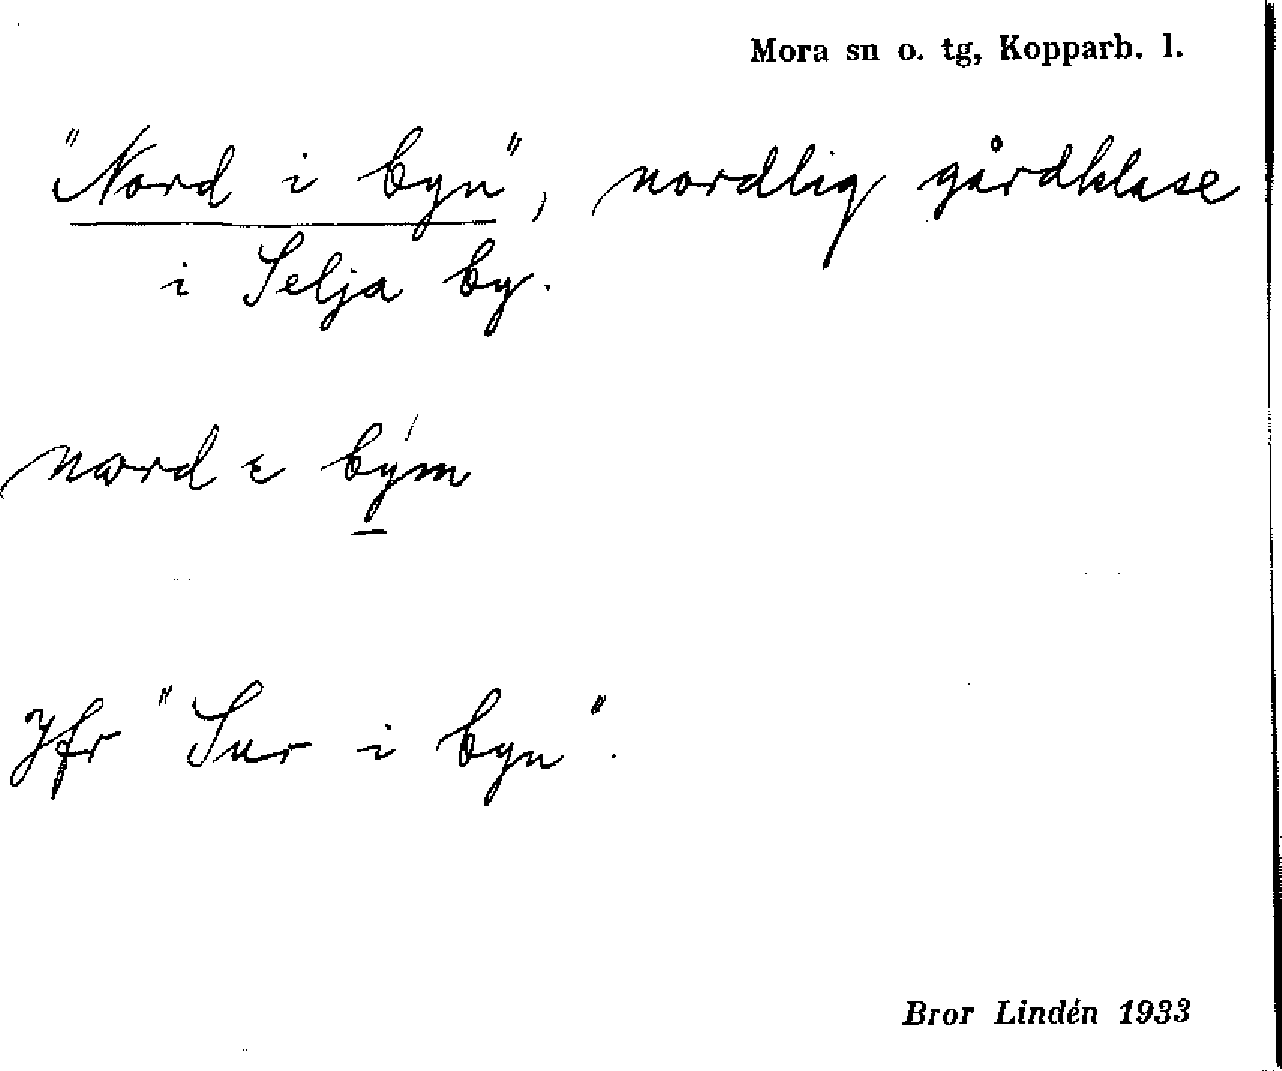 Mora sn o. tg, Kopparb. l.
"Nord i byn", nordlig gårdklase
i Selja by.
nord ε bým
Jfr "Sur i byn".
Bror Lindén 1933